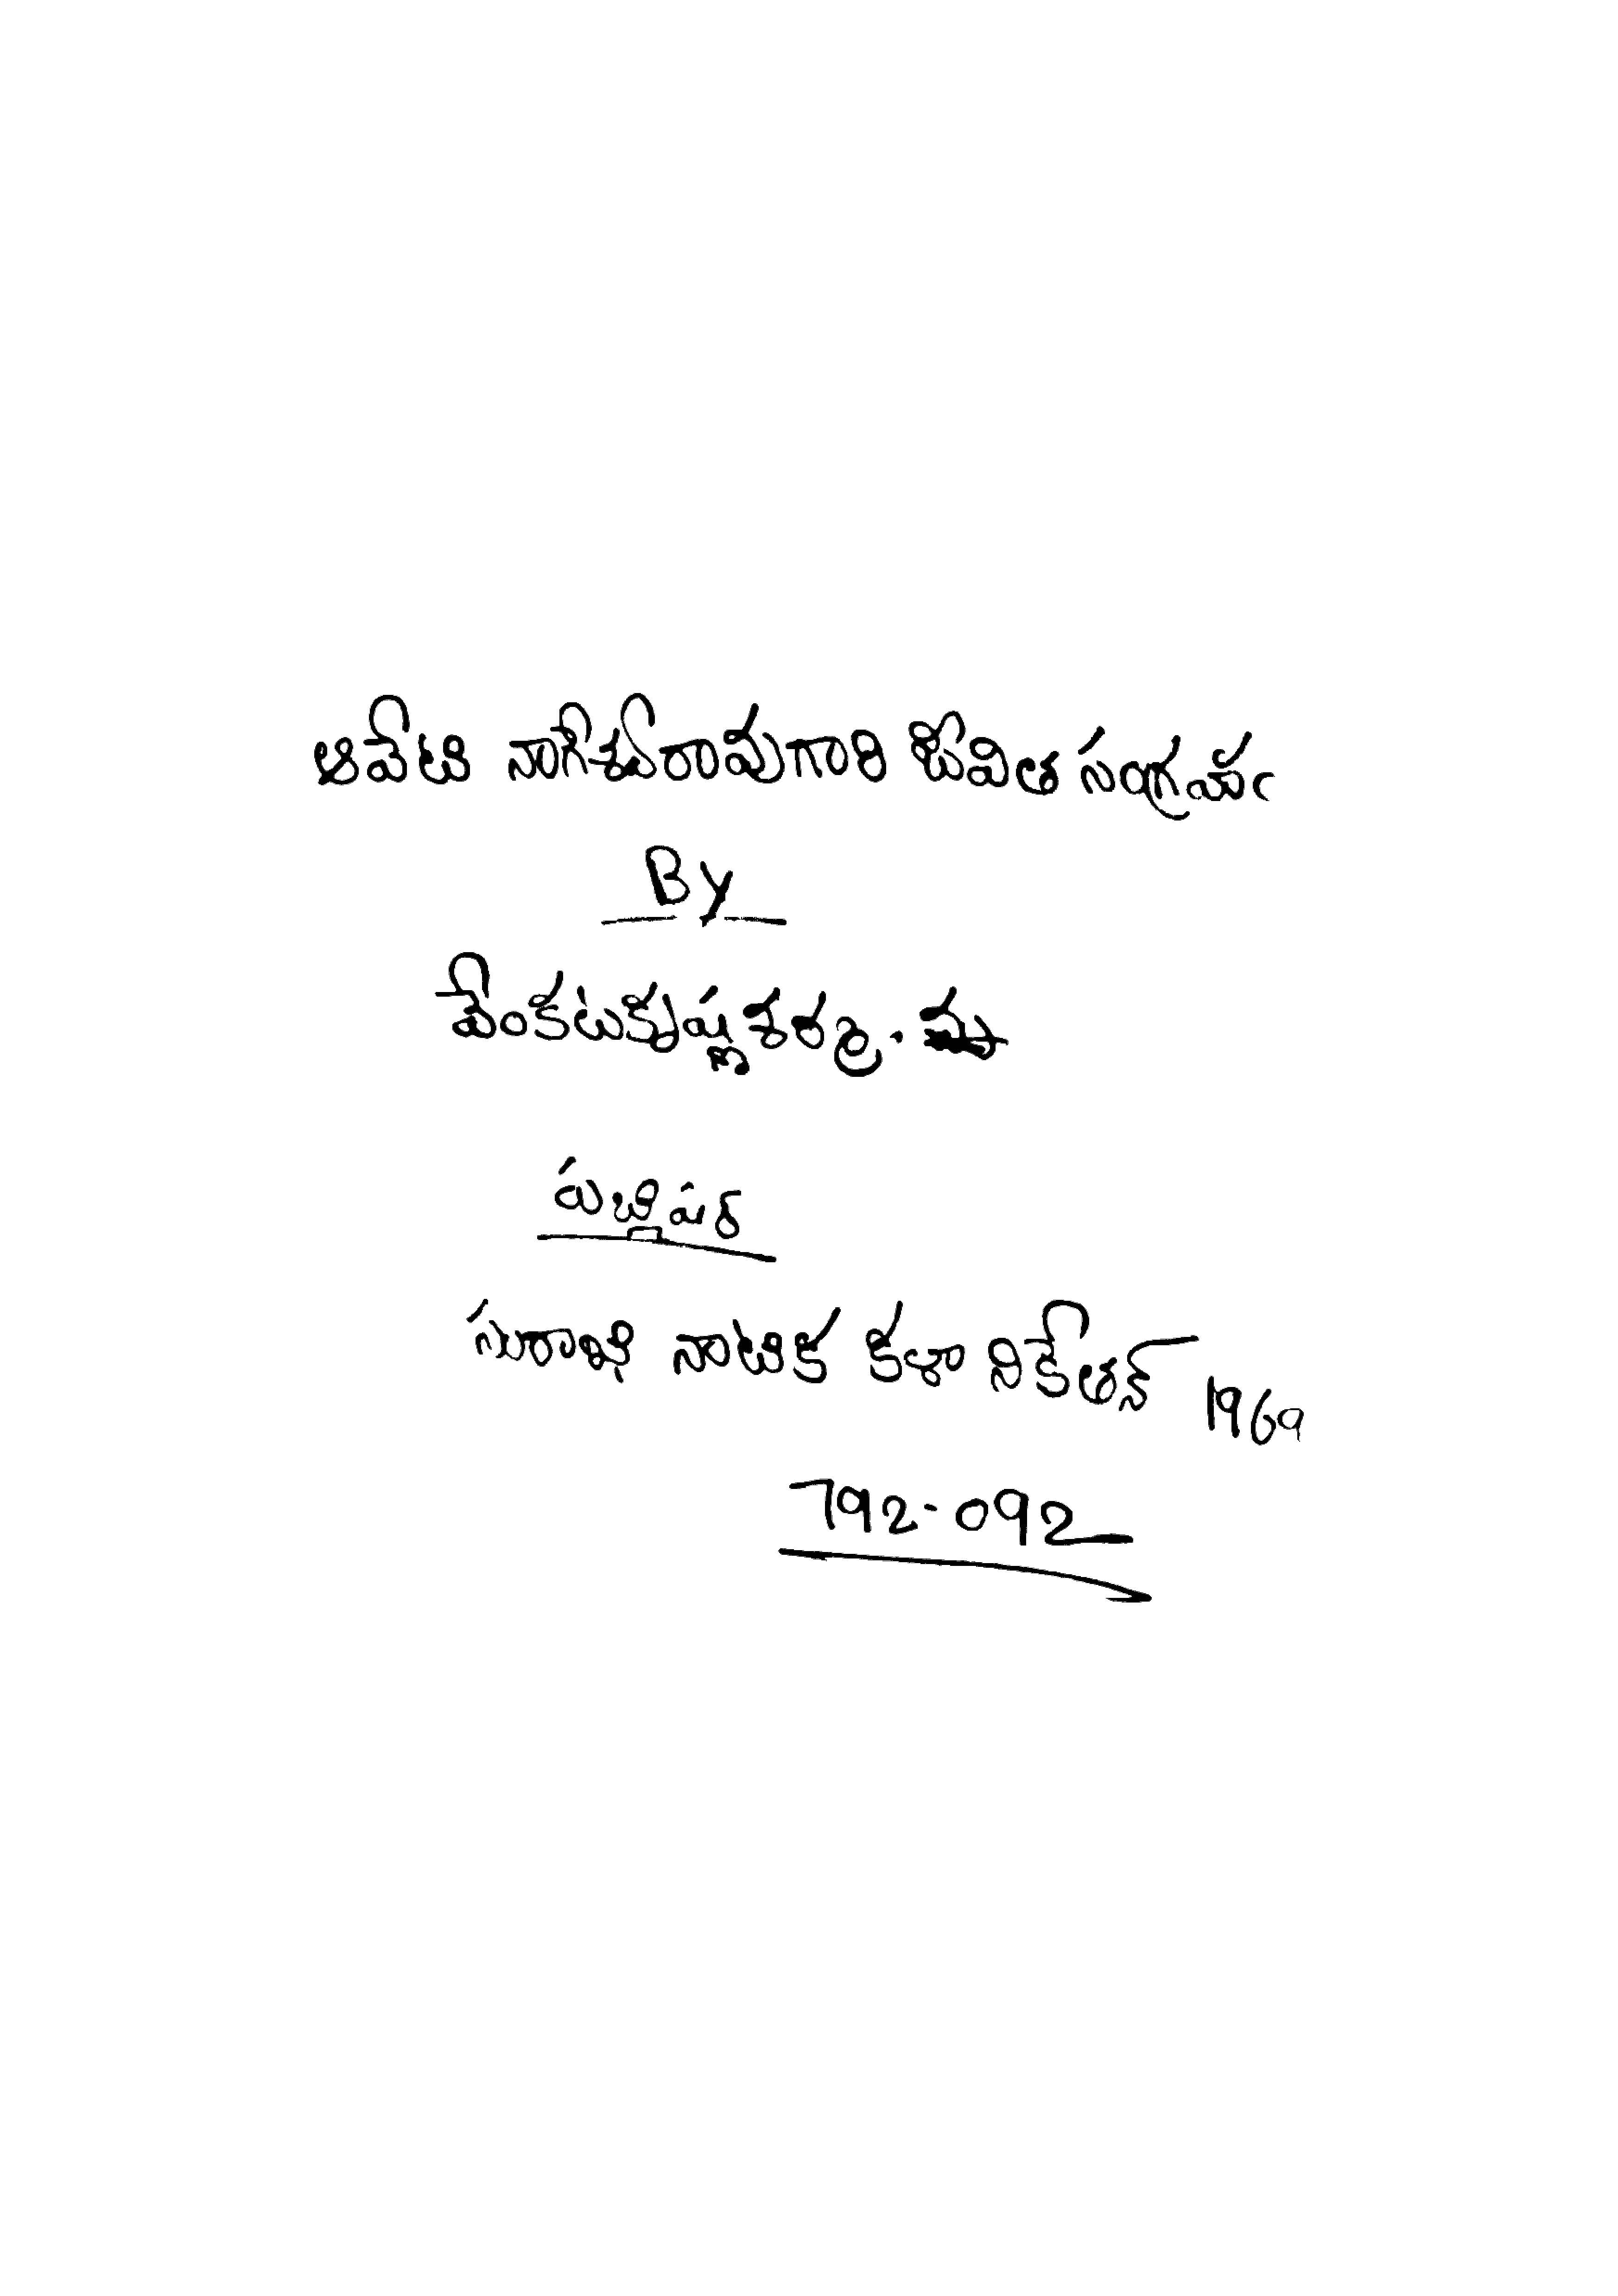 ఆవేటి నాగేశ్వరరావుగారి జీవిత సంగ్రహం
By
వేంకటకృష్ణశర్మ.
పబ్లిషర్
సురాభి నాటిక కళా నికేతన్ 1969
792-092